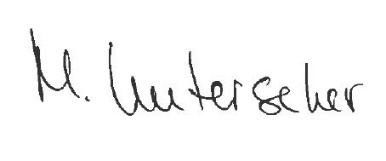 M. Unterscher